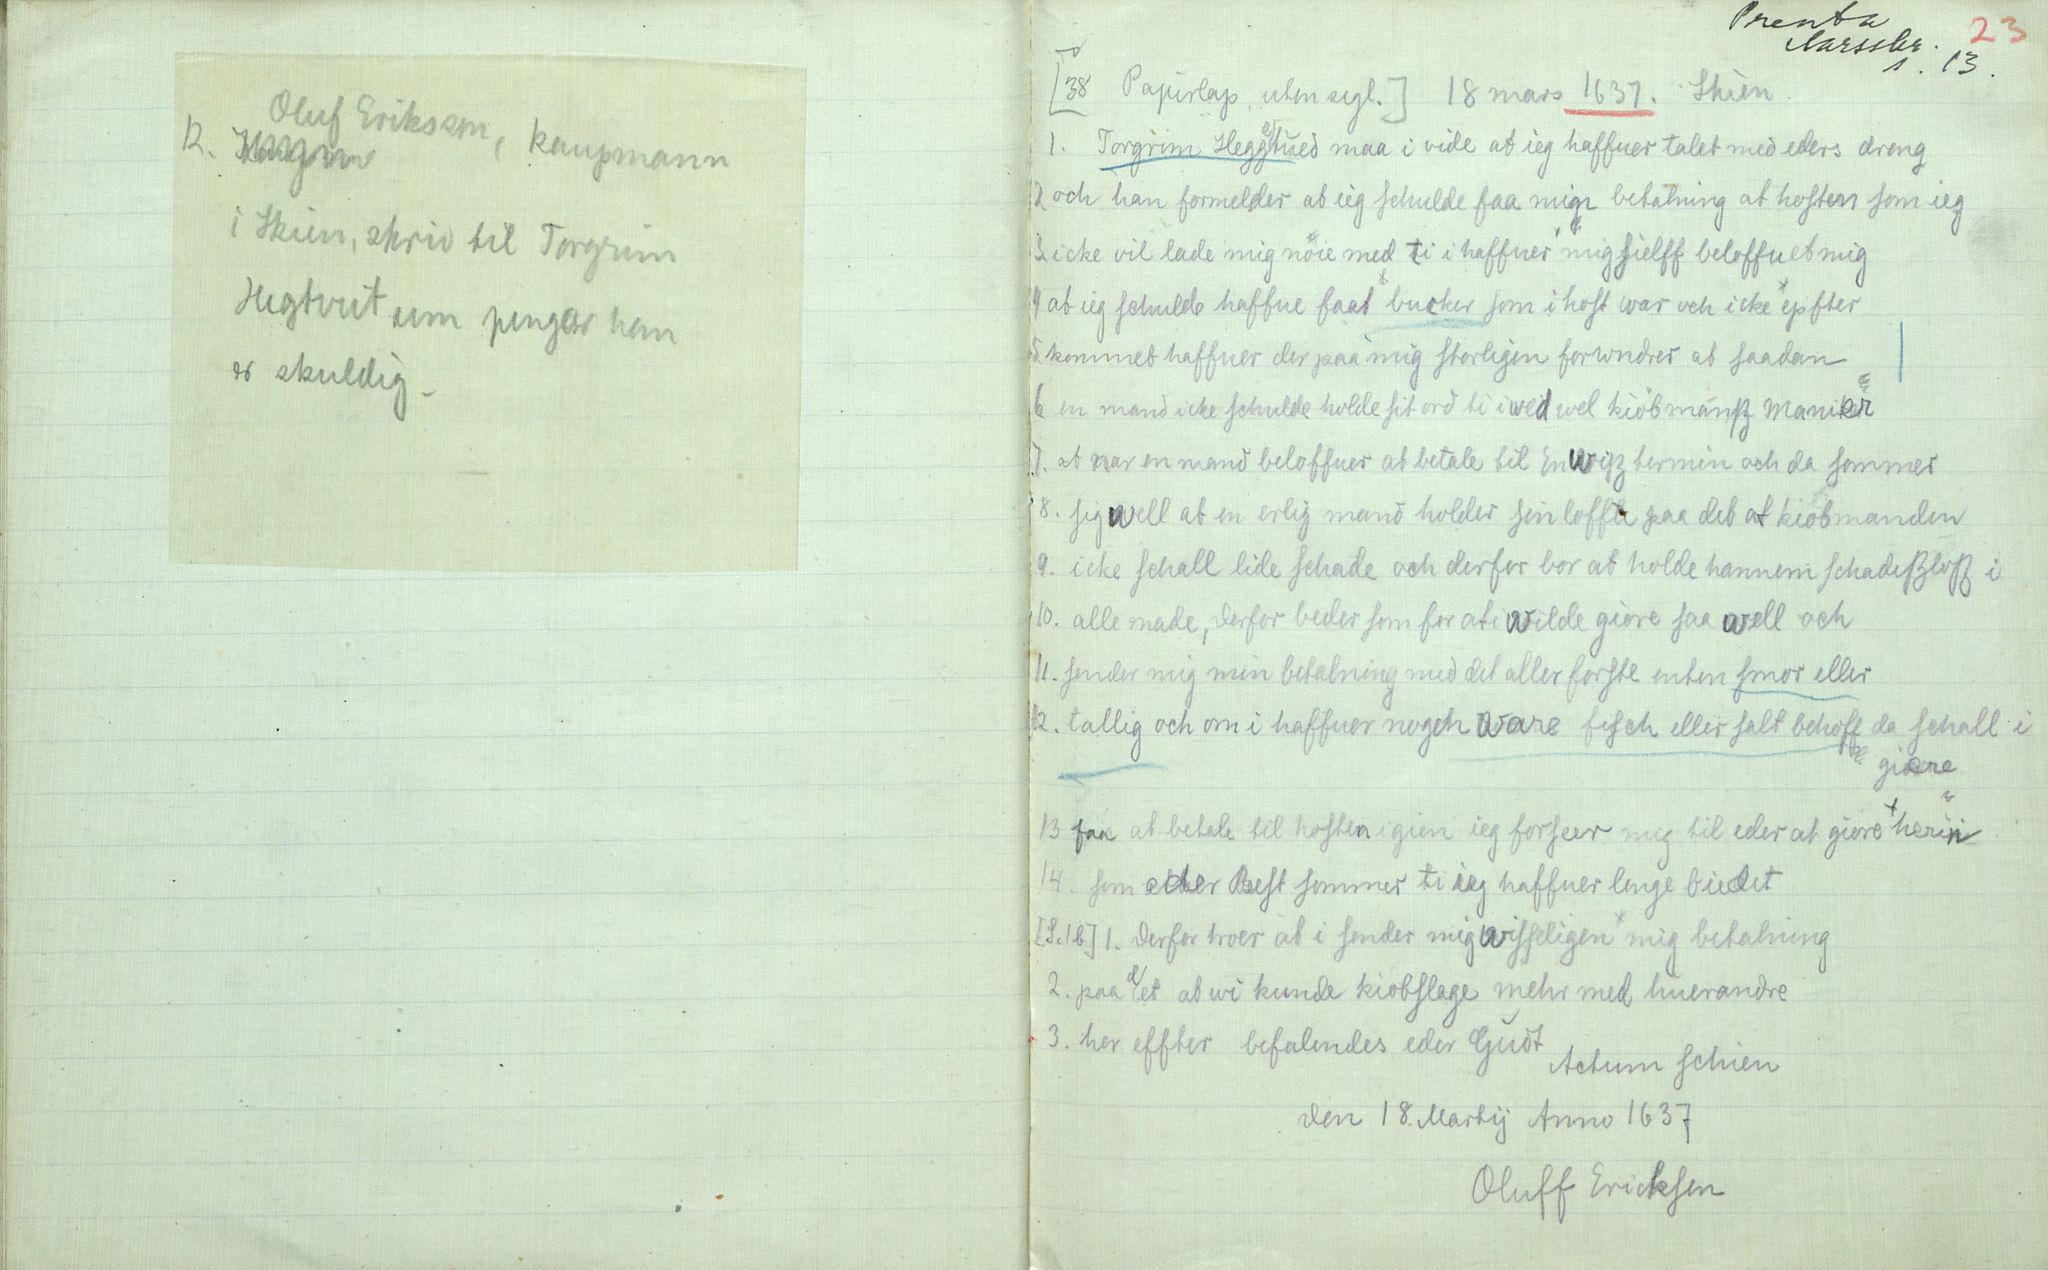 Oluf Eriksson, kaupmann
12.
i Skien, skriv til Torgrim
Hegtveit um pengar han
er skuldig.
Prenta
Aarsskr.
s. 13.
23
[38 Papirlap, uten segl.] 18 mars 1637. Skien.
1. Torgrim Heggtued maa i vide at ieg haffuer talet med eders dreng
2. och han formelder at ieg schulde faa migh betalning at hosten som ieg
3. icke vil lade mig nöie med ti i haffuer mig sielff beloffuet mig
4 at ieg schulde haffue faat bucker som i host war och icke epfter
5. kommet haffuer der paa mig storligen forwndrer at saadan
6 en mand icke schulde holde sit ord ti i wed wel kiöbmanß Manier
7. at nar en mand beloffuer at betale til En wisz termin och da sommer
8. sig well at en erlig mand holder sin loffte paa det at kiobmanden
9. icke schall lide schade och derfor bor at holde hannem schadeßloß i
10. alle made, derfor beder som for at i wilde giore saa well och
11. sender mig min betalning med det aller forste enten smor eller
12. tallig och om i haffuer nogeh Ware fisch eller salt behoff da schall i
giöre
13 faa at betale til hosten igien ieg forseer mig til eder at giore herin
14. som eder Best sommer ti ieg haffuer lenge biedet
[S. 1b] 1. Derfor troer at i sender mig wisseligen mig betalning
2. paa det at wi kunde kiobslage mehr med huerandre
3. her effter befalendes eder Gudt
Actum Schien
den 18. Martij Anno 1637
Oluff Ericksen